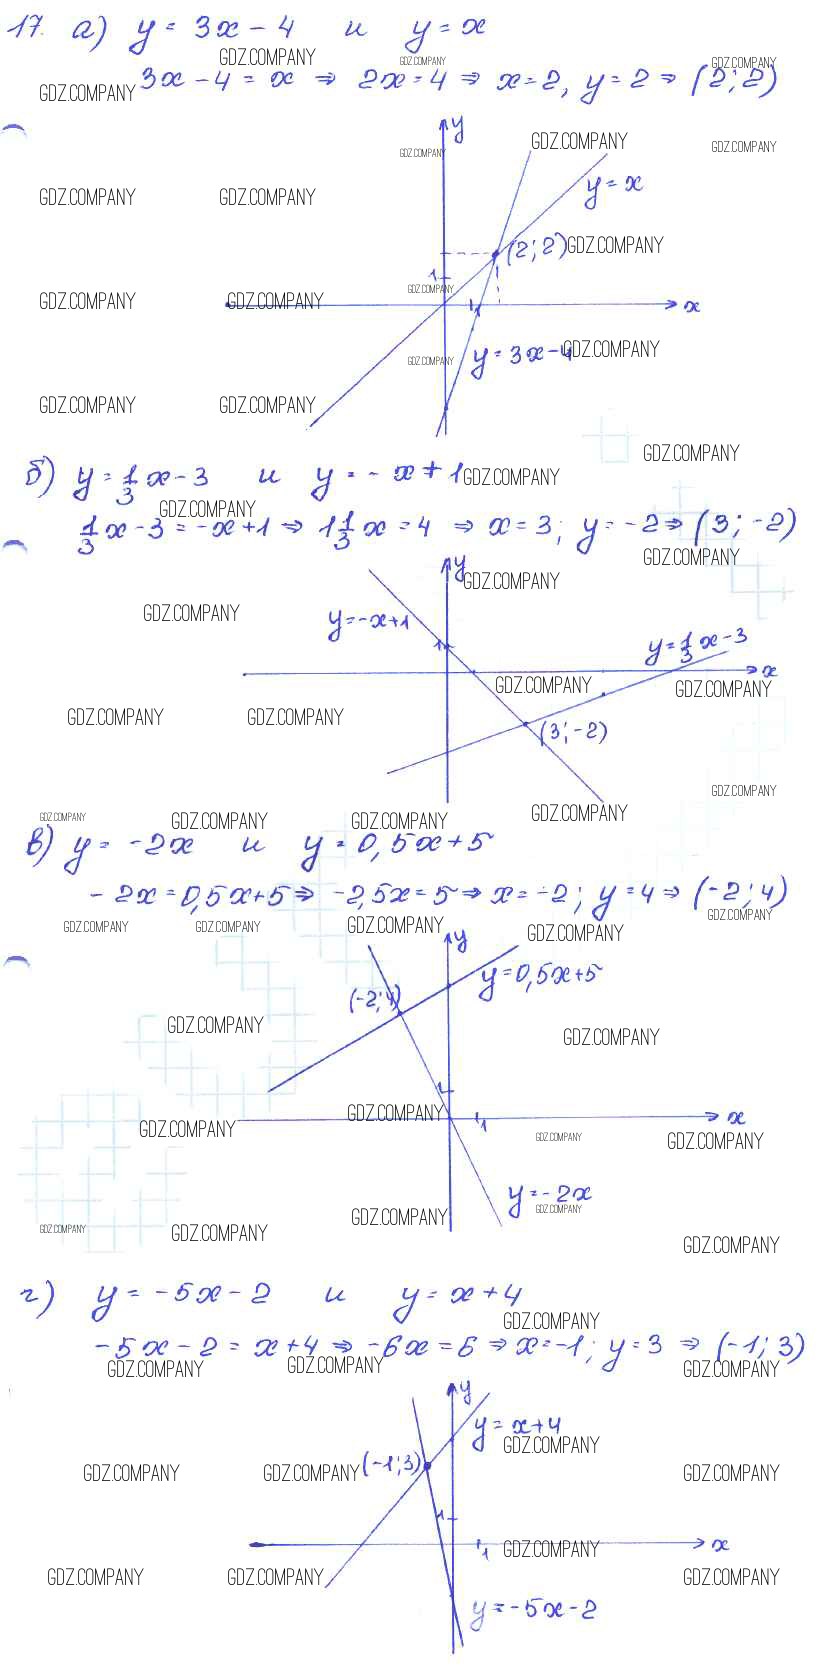 17. а) y = 3x - 4 и y = x
3x - 4 = x ⇒ 2x = 4 ⇒ x = 2, y = 2 ⇒ (2; 2)
y
y = x
(2; 2)
1
1
x
y = 3x - 4
б) y = 1/3 x - 3 и y = - x + 1
1/3 x - 3 = -x + 1 ⇒ 1 1/3 x = 4 ⇒ x = 3; y = -2 ⇒ (3; -2)
y
y = -x + 1
1
y = 1/3 x - 3
x
(3; -2)
в) y = -2x и y = 0,5x + 5
-2x = 0,5x + 5 ⇒ -2,5x = 5 ⇒ x = -2; y = 4 ⇒ (-2; 4)
y
y = 0,5x + 5
(-2; 4)
1
1
x
y = -2x
г) y = -5x - 2 и y = x + 4
-5x - 2 = x + 4 ⇒ -6x = 6 ⇒ x = -1; y = 3 ⇒ (-1; 3)
y
y = x + 4
(-1; 3)
1
1
x
y = -5x - 2
GDZ.COMPANY